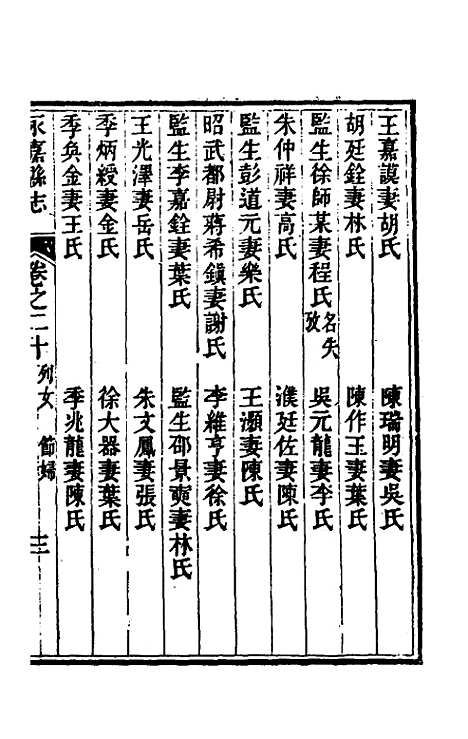 王嘉謨妻胡氏　陳瑞明妻吳氏
胡廷銓妻林氏　陳作玉妻葉氏
監生徐師某妻程氏名失攷　吳元龍妻李氏
朱仲祥妻高氏　濮廷佐妻陳氏
監生彭道元妻樂氏　王灝妻陳氏
昭武都尉蔣希鎮妻謝氏　李維亨妻徐氏
監生李嘉銓妻葉氏　監生邵景奭妻林氏
王光澤妻岳氏　朱文鳳妻張氏
季炳綬妻金氏　徐大器妻葉氏
季奐金妻王氏　季兆龍妻陳氏
永嘉縣志　卷之二十列女　節婦